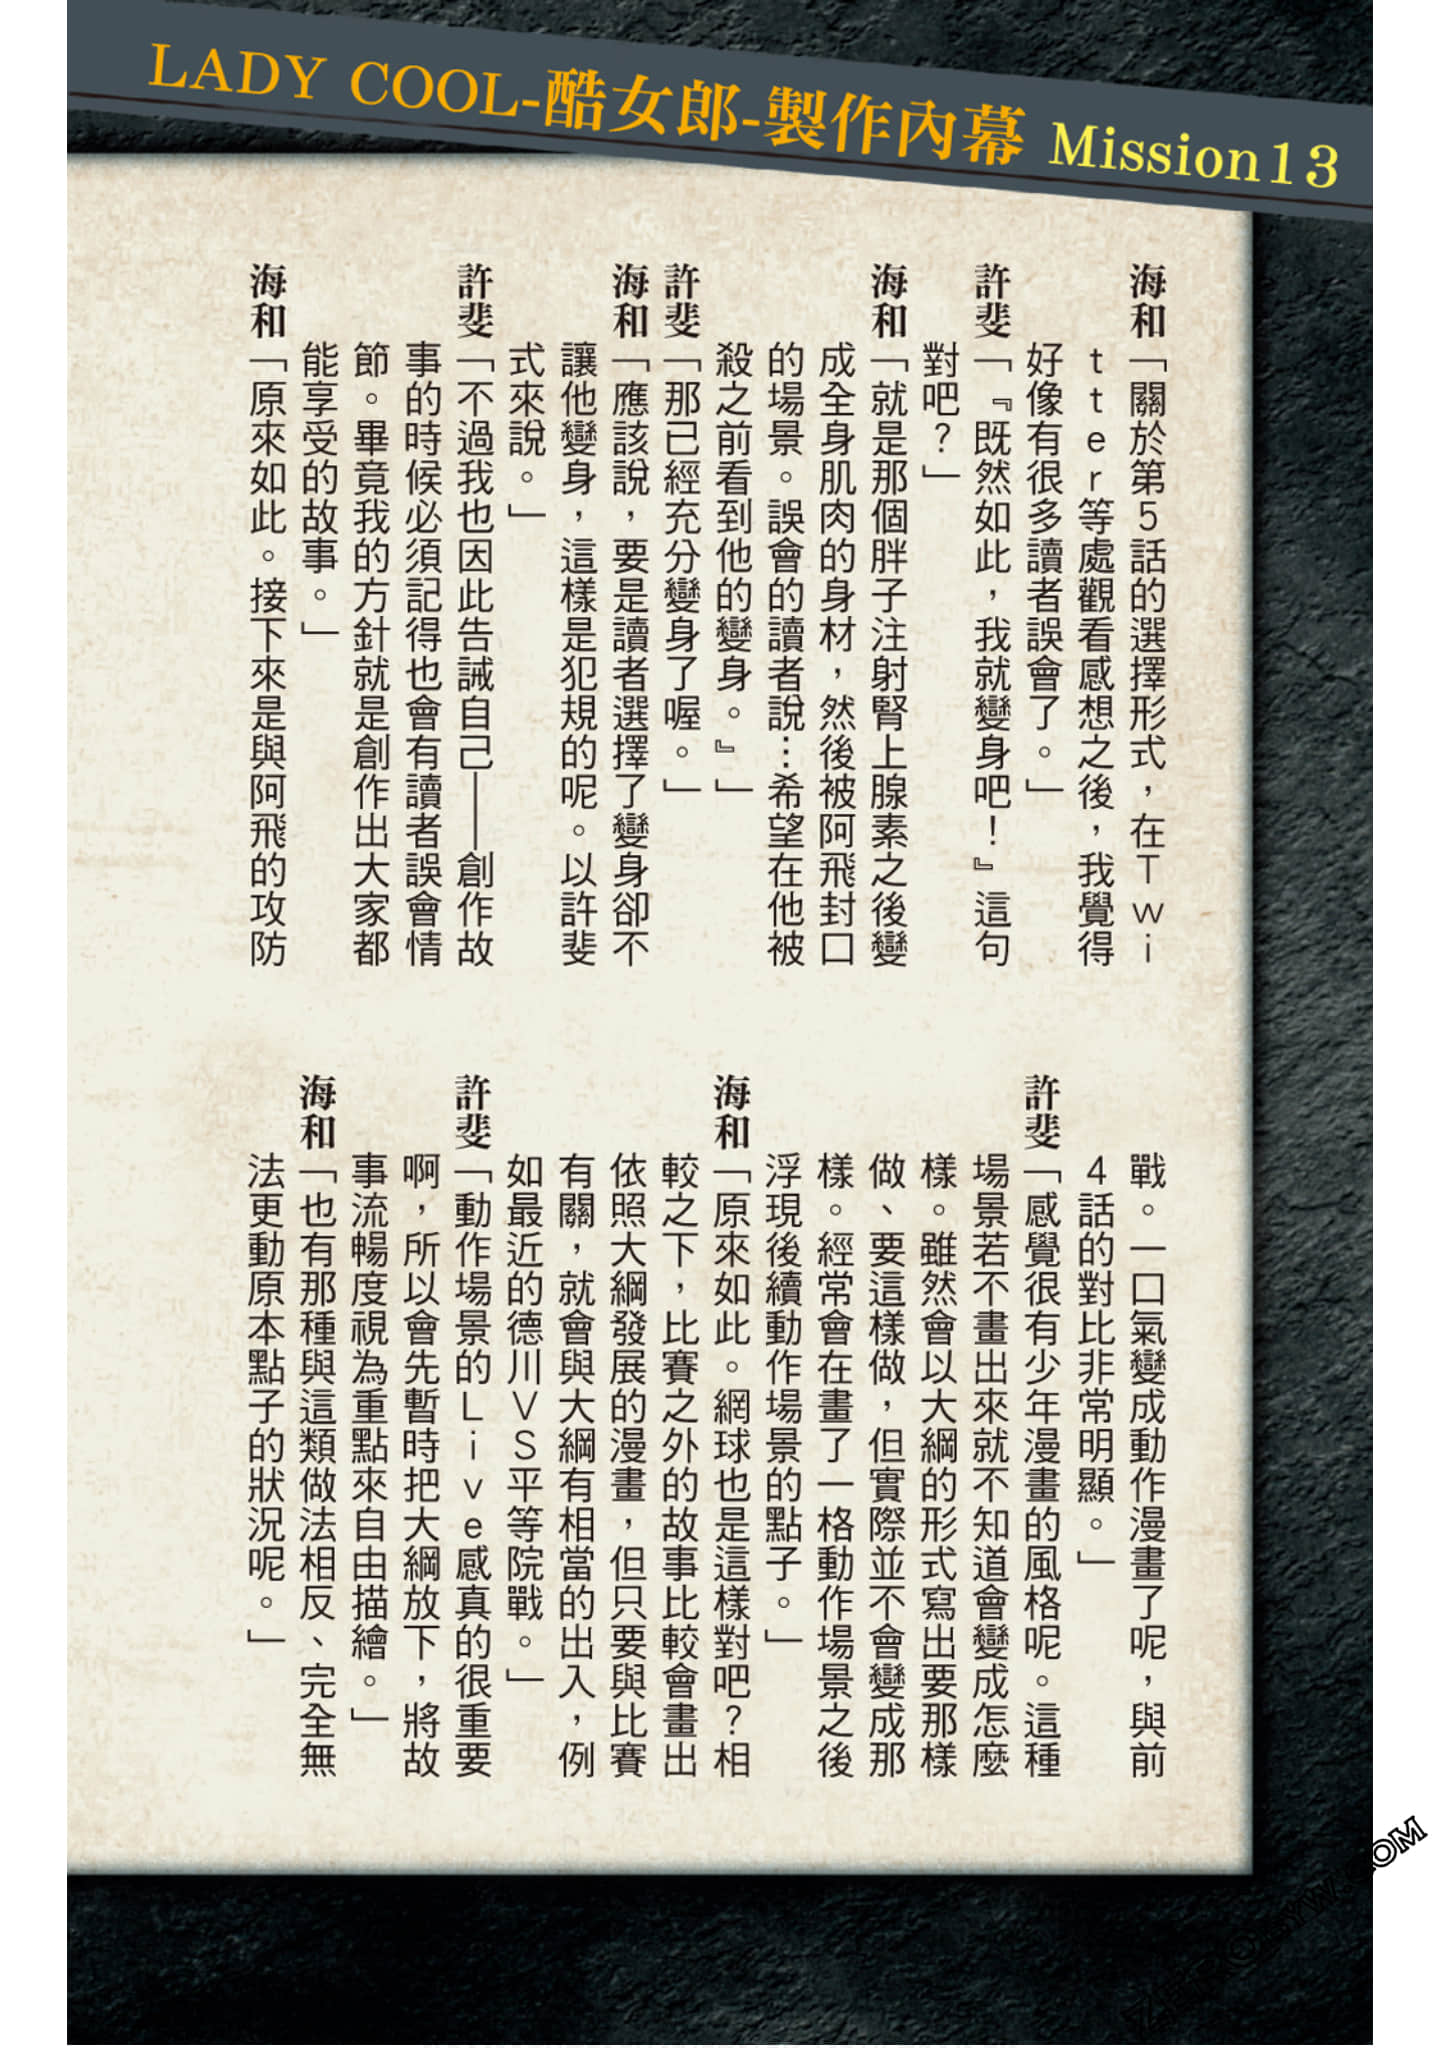 LADY COOL-酷女郎-製作內幕 Mission13
海和「關於第5話的選擇形式，在Twi
tter等處觀看感想之後，我覺得
好像有很多讀者誤會了。」
許斐「『既然如此，我就變身吧！』這句
對吧？」
海和「就是那個胖子注射腎上腺素之後變
成全身肌肉的身材，然後被阿飛封口
的場景。誤會的讀者說…希望在他被
殺之前看到他的變身。』」
許斐「那已經充分變身了喔。」
海和「應該說，要是讀者選擇了變身卻不
讓他變身，這樣是犯規的呢。以許斐
式來說。」
許斐「不過我也因此告誡自己——創作故
事的時候必須記得也會有讀者誤會情
節。畢竟我的方針就是創作出大家都
能享受的故事。」
海和「原來如此。接下來是與阿飛的攻防
戰。一口氣變成動作漫畫了呢，與前
4話的對比非常明顯。」
許斐「感覺很有少年漫畫的風格呢。這種
場景若不畫出來就不知道會變成怎麼
樣。雖然會以大綱的形式寫出要那樣
做、要這樣做，但實際並不會變成那
樣。經常會在畫了一格動作場景之後
浮現後續動作場景的點子。」
海和「原來如此。網球也是這樣對吧？相
較之下，比賽之外的故事比較會畫出
依照大綱發展的漫畫，但只要與比賽
有關，就會與大綱有相當的出入，例
如最近的德川VS平等院戰。」
許斐「動作場景的Live感真的很重要
啊，所以會先暫時把大綱放下，將故
事流暢度視為重點來自由描繪。」
海和「也有那種與這類做法相反、完全無
法更動原本點子的狀況呢。」